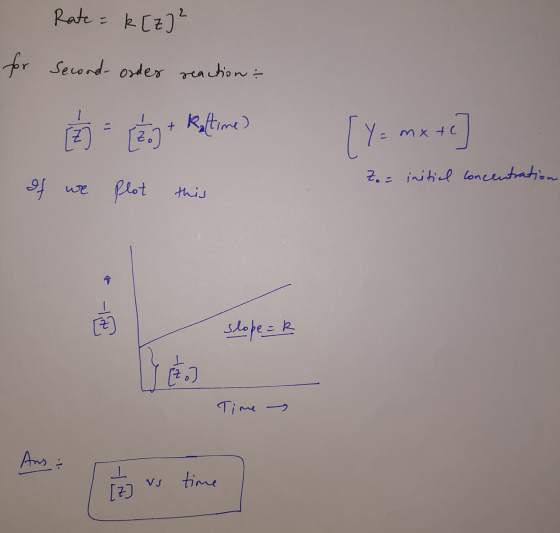 Rate = k[Z]²
for second-order reaction ÷
1/[Z] = 1/[Z₀] + k₂(time)
[Y = mx + c]
Z₀ = initial concentration
If we plot this
1/[Z]
slope = k
1/[Z₀]
Time →
Ans ÷
1/[Z] vs time